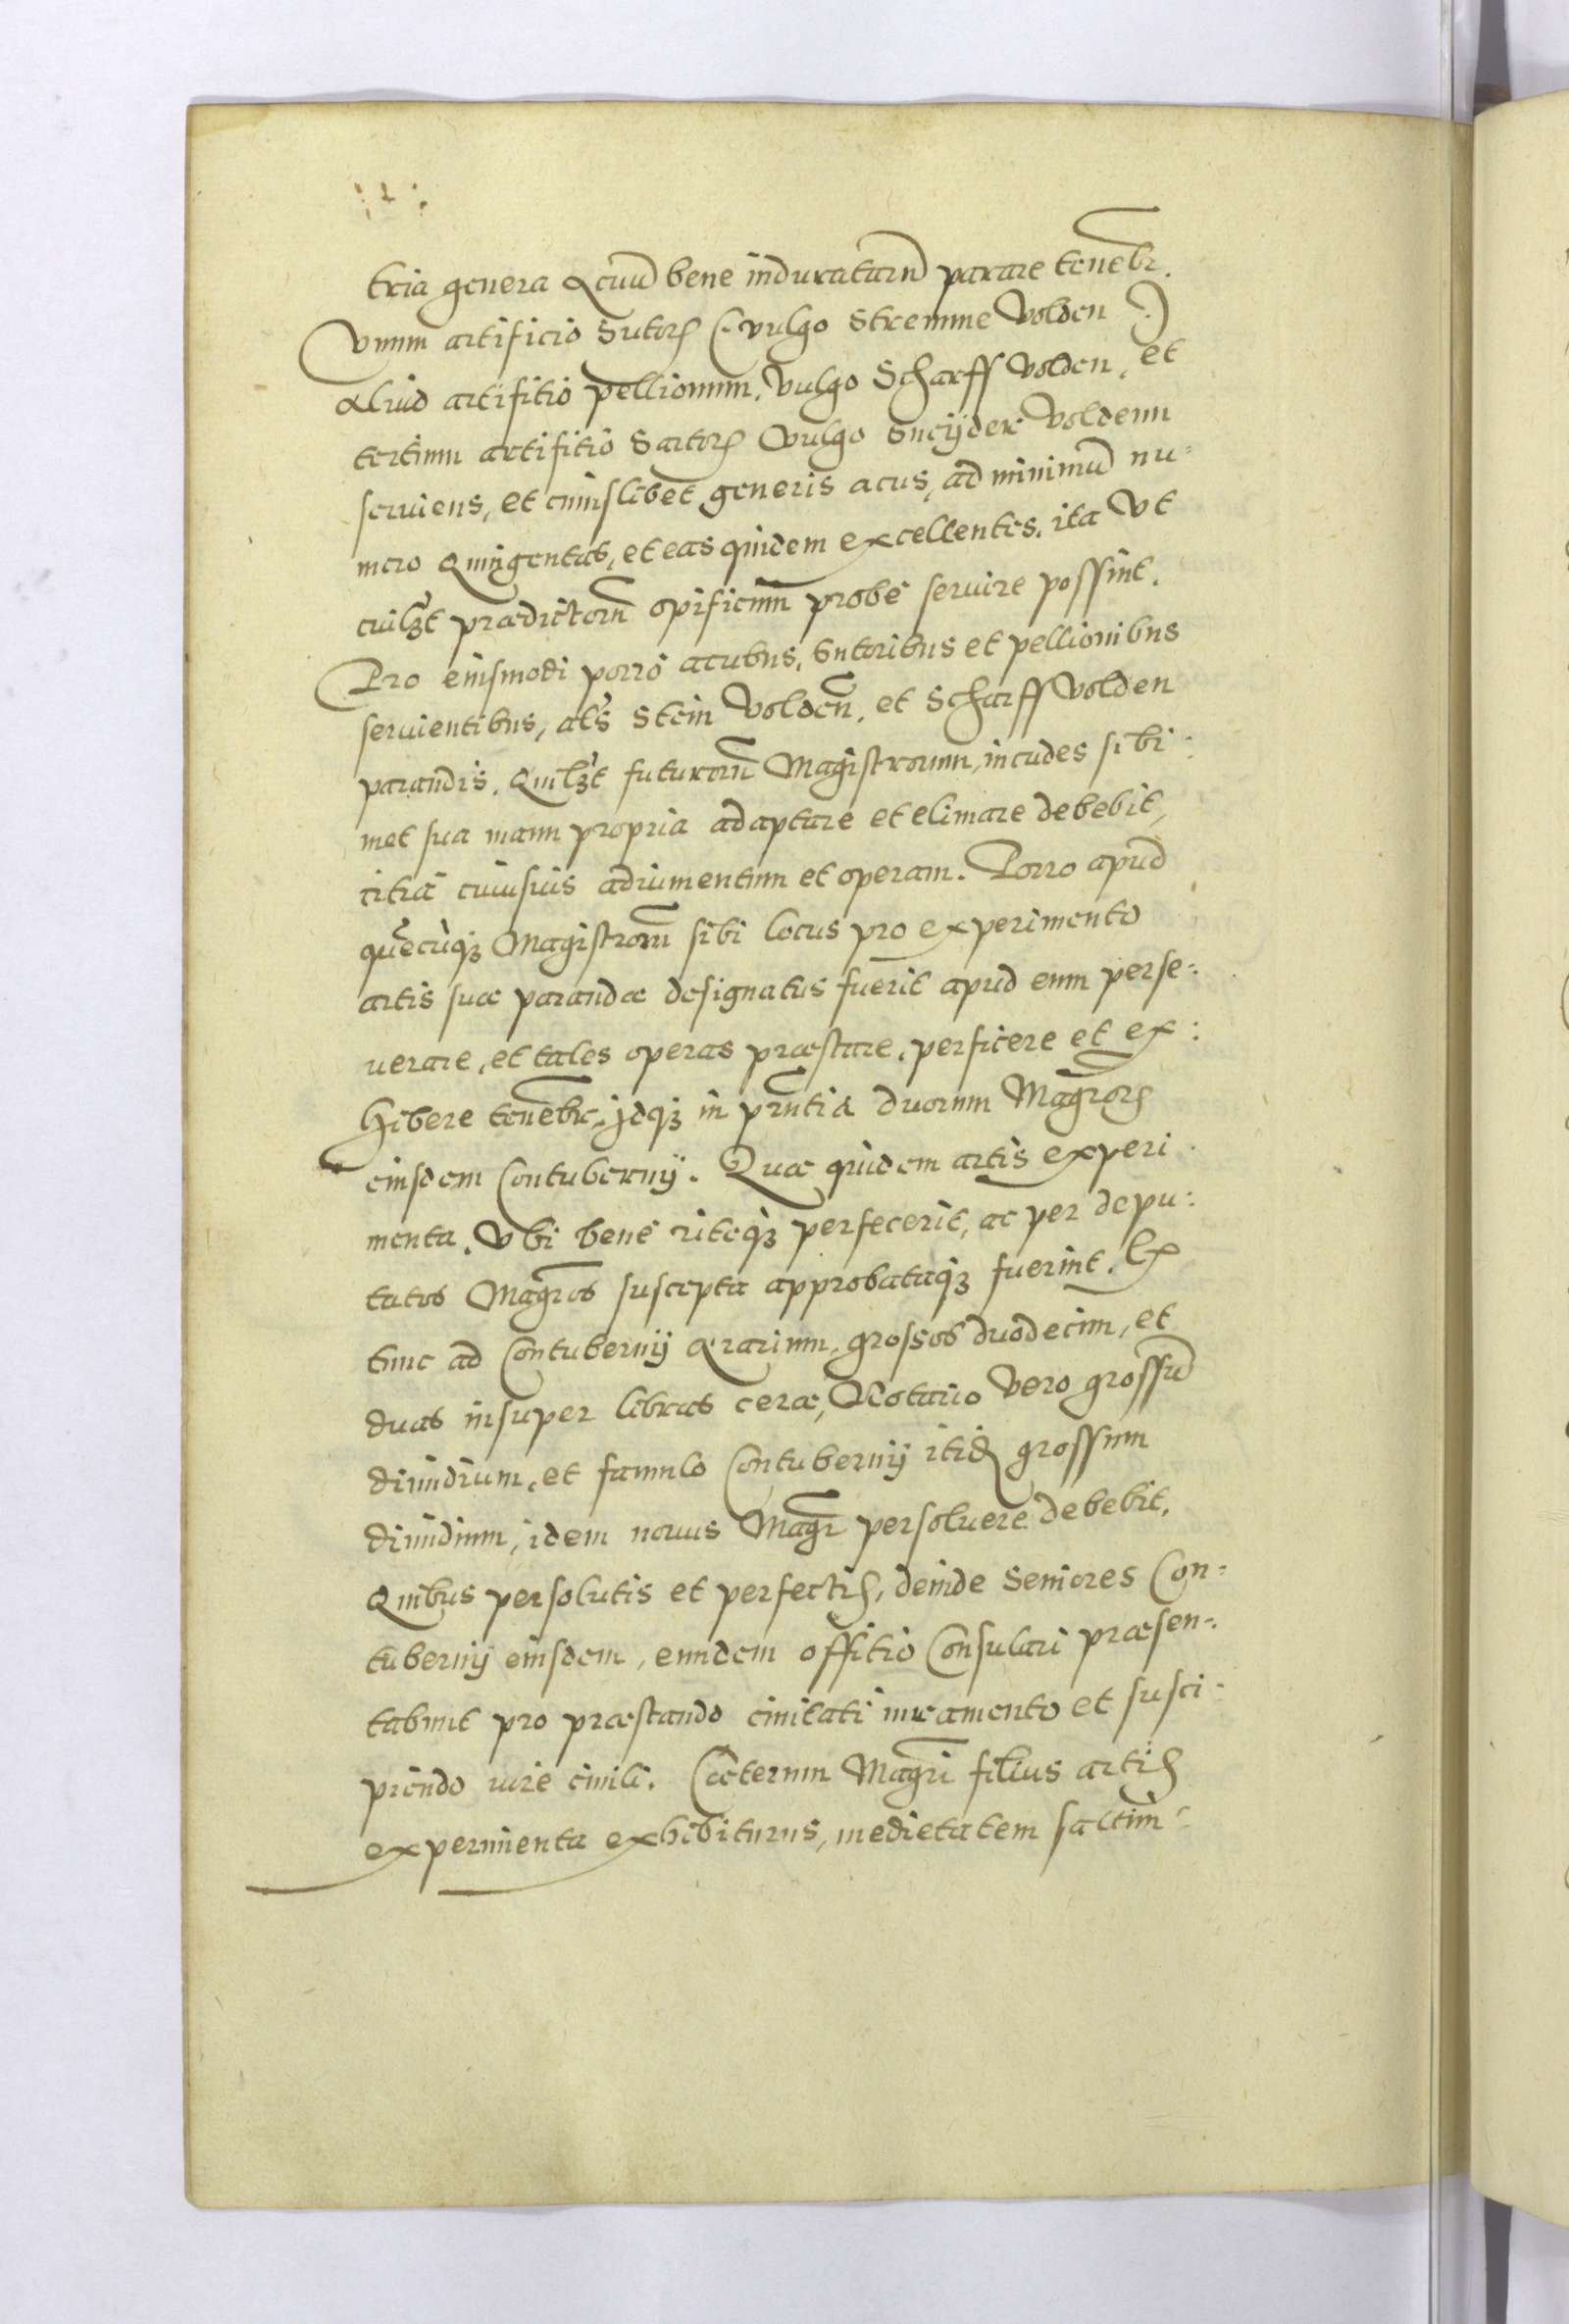 tria genera Acuu bene induratarū parare tenebr.
Vnum artificio Sutorꝝ (vulgo Stremme Volden)
Aliud artifitio pellionum, vulgo Scharff volden, et
tertium artifitio Sartorꝝ vulgo Sneijder Voldenn
seruiens, et cuiuslibet generis acus, ad minimū nu:
mero Quingentas, et eas quidem excellentes, ita Vt
cuilꝫt prædictorū opificum probè seruire possint.
Pro eiusmodi porrò acubus, Sutoribus et pellionibus
seruientibus, als Stein Voldeñ, et Scharff Volden
parandis, Quilꝫt futurorū Magistrorum, incudes sibi:
met sua manu propria adaptare et elimare debebit,
citrà cuiusuis adiumentum et operam. Porro apud
quēcūqꝫ Magistrorū sibi locus pro experimento
artis suæ parandæ designatus fuerit apud eum perse:
uerare, et tales operas præstare, perficere et ex:
hibere tenebr, jdqꝫ in prntia duorum Magrorꝝ
eiusdem Contubernij. Quæ quidem artis experi
menta, Vbi benè riteqꝫ perfecerit, ac per depu:
tatos Magros suscepta approbataqꝫ fuerint. Ex
tunc ad Contubernij Ærarium, grossos duodecim, et
duas insuper libras ceræ, Notario Vero grossū
dimidium, et famulo Contubernij itidꝫ grossum
dimidium, idem nouus Magr persoluere debebit,
Quibus persolutis et perfectis, deinde Seniores Con:
tubernij eiusdem, eundem offitio Consulari præsen:
tabunt pro præstando ciuitati iuramento et susci:
piendo iure ciuili. Cæterum Magri filius artis
experimenta exhibiturus, medietatem saltim